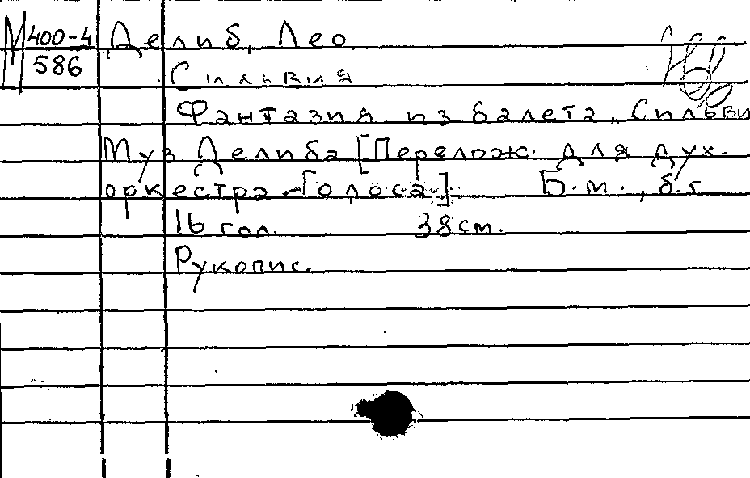 М 400-4 Делиб, Лео
586 Сильвия
Фантазия из балета „Сильви
Муз Делиба [Перелож. для дух.
оркестра - Голоса] Б.м., б.г.
16 гол. 38 см.
Рукопис.